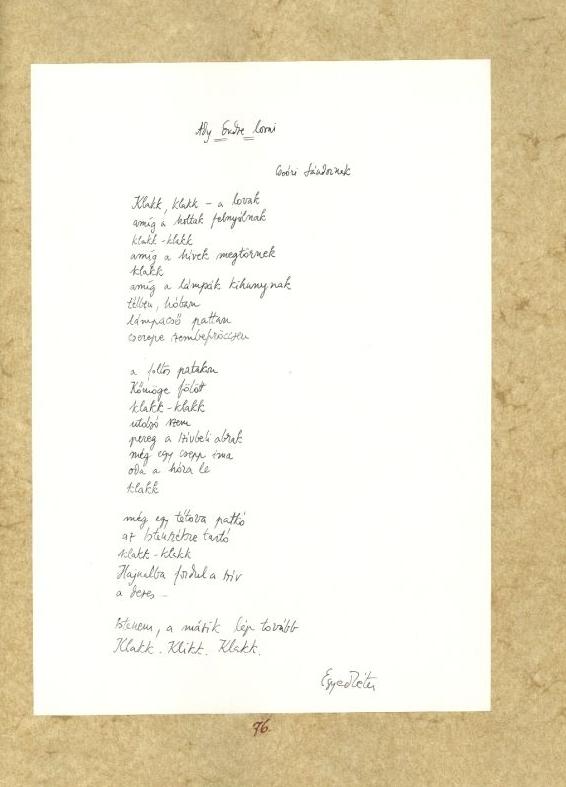 Ady Endre lovai
Csoóri Sándornak
Klakk, klakk – a lovak
amíg a holtak felnyúlnak
klakk-klakk
amíg a hívek megtörnek
klakk
amíg a lámpák kihunynak
télben, hóban
lámpacső pattan
cserepe szembefröccsen
a foltos patakon
Kőmöge fölött
klakk-klakk
utolsó szem
pereg a szívbeli abrak
még egy csepp ima
oda a hóra le
klakk
még egy tétova patkó
az Istenkébe tartó
klakk-klakk
Hajnalba fordul a szív
a deres –
Istenem, a másik lép tovább
Klakk. Klikk. Klakk.
Egyed Péter
76